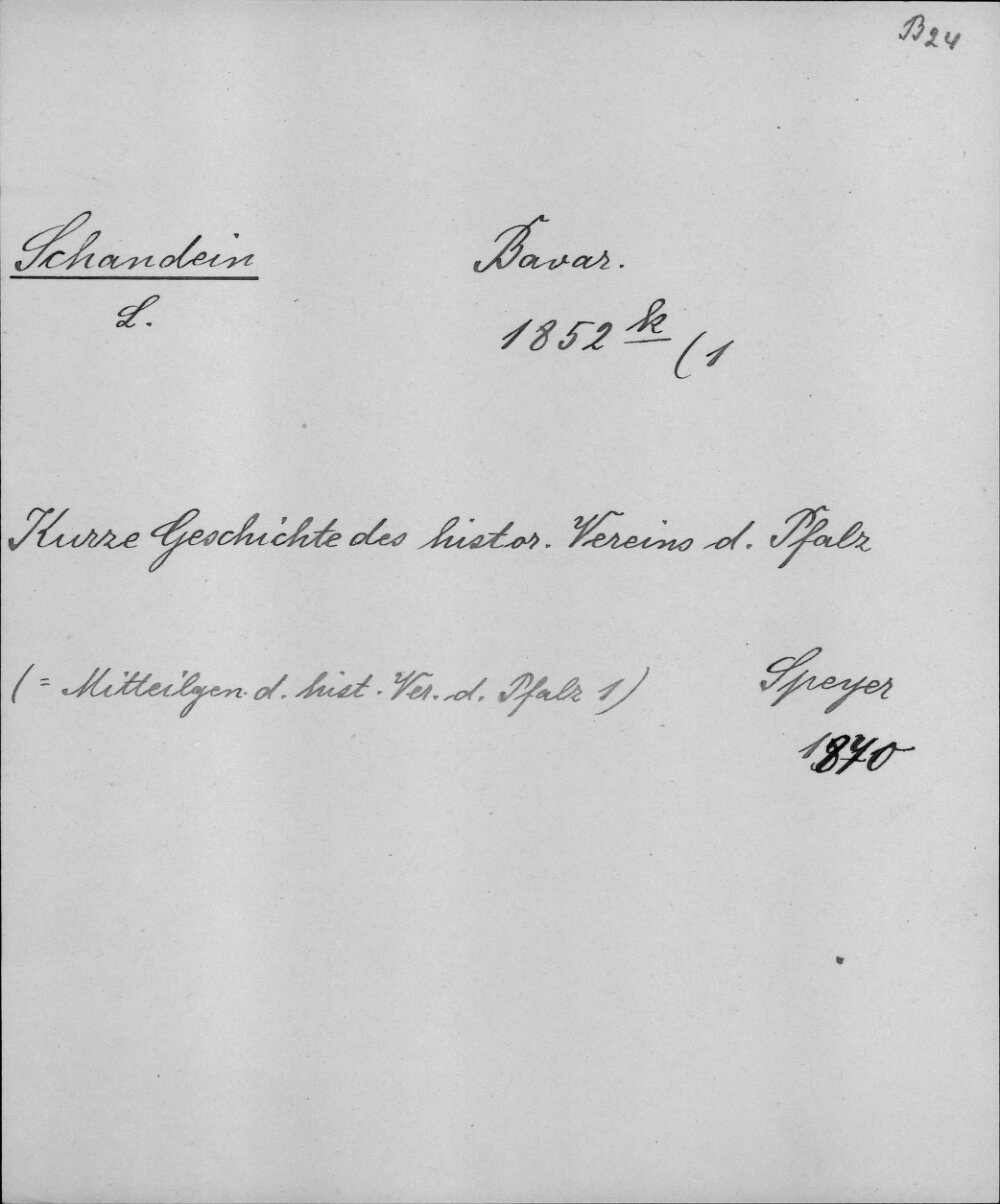 B24
Schandein
L.
Bavar.
1852 k (1
Kurze Geschichte des histor. Vereins d. Pfalz
(= Mitteilgen. d. hist. Ver. d. Pfalz 1)
Speyer
1870